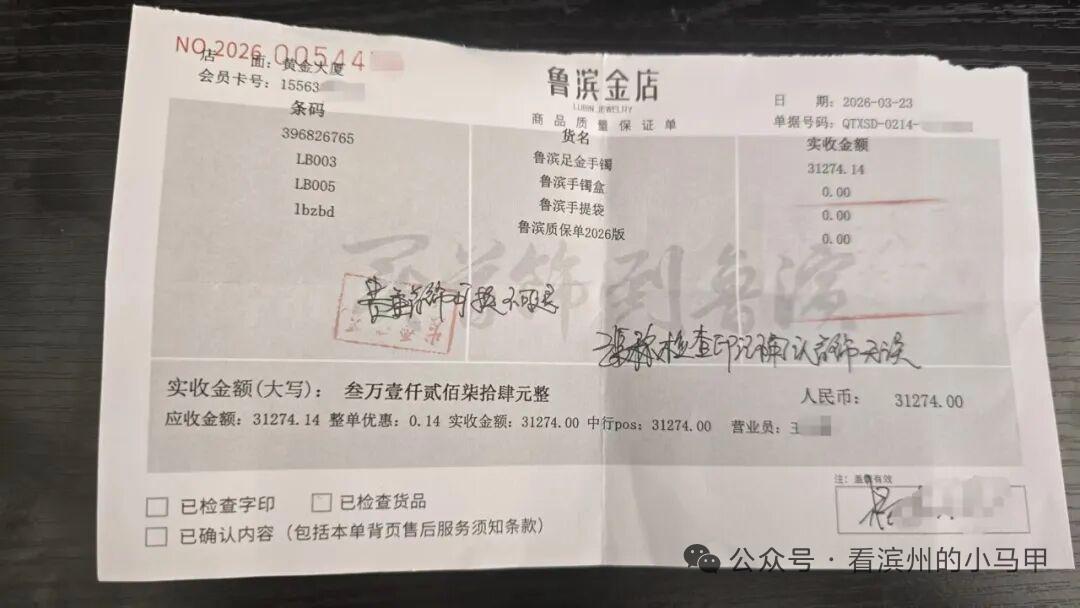 NO.2026 00544
店　面：黄金大厦
会员卡号：15563
鲁滨金店
LUBIN JEWELRY
商品质量保证单
日　期：2026-03-23
单据号码：QTXSD-0214-
条码 货名 实收金额
396826765 鲁滨足金手镯 31274.14
LB003 鲁滨手镯盒 0.00
LB005 鲁滨手提袋 0.00
lbzbd 鲁滨质保单2026版 0.00
买首饰到鲁滨
贵重首饰可换不可退
检查印记确认首饰无误
实收金额(大写)：叁万壹仟贰佰柒拾肆元整 人民币：31274.00
应收金额：31274.14 整单优惠：0.14 实收金额：31274.00 中行pos：31274.00 营业员：王
已检查字印 已检查货品
已确认内容（包括本单背页售后服务须知条款）
注：盖章有效
公众号 · 看滨州的小马甲